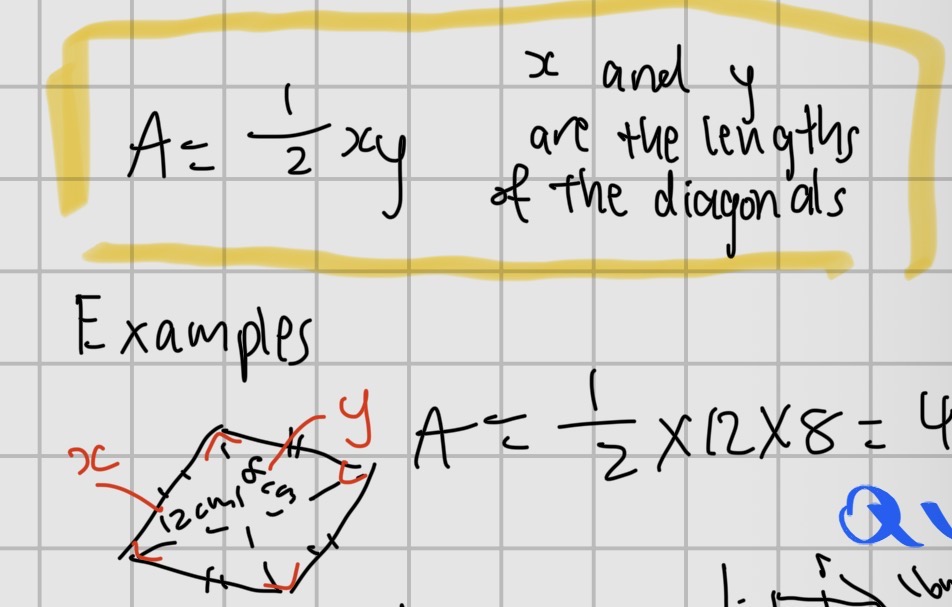 A = 1/2 xy
x and y
are the lengths
of the diagonals
Examples
x
y
12cm
8
A = 1/2 × 12 × 8 = 4
Qu